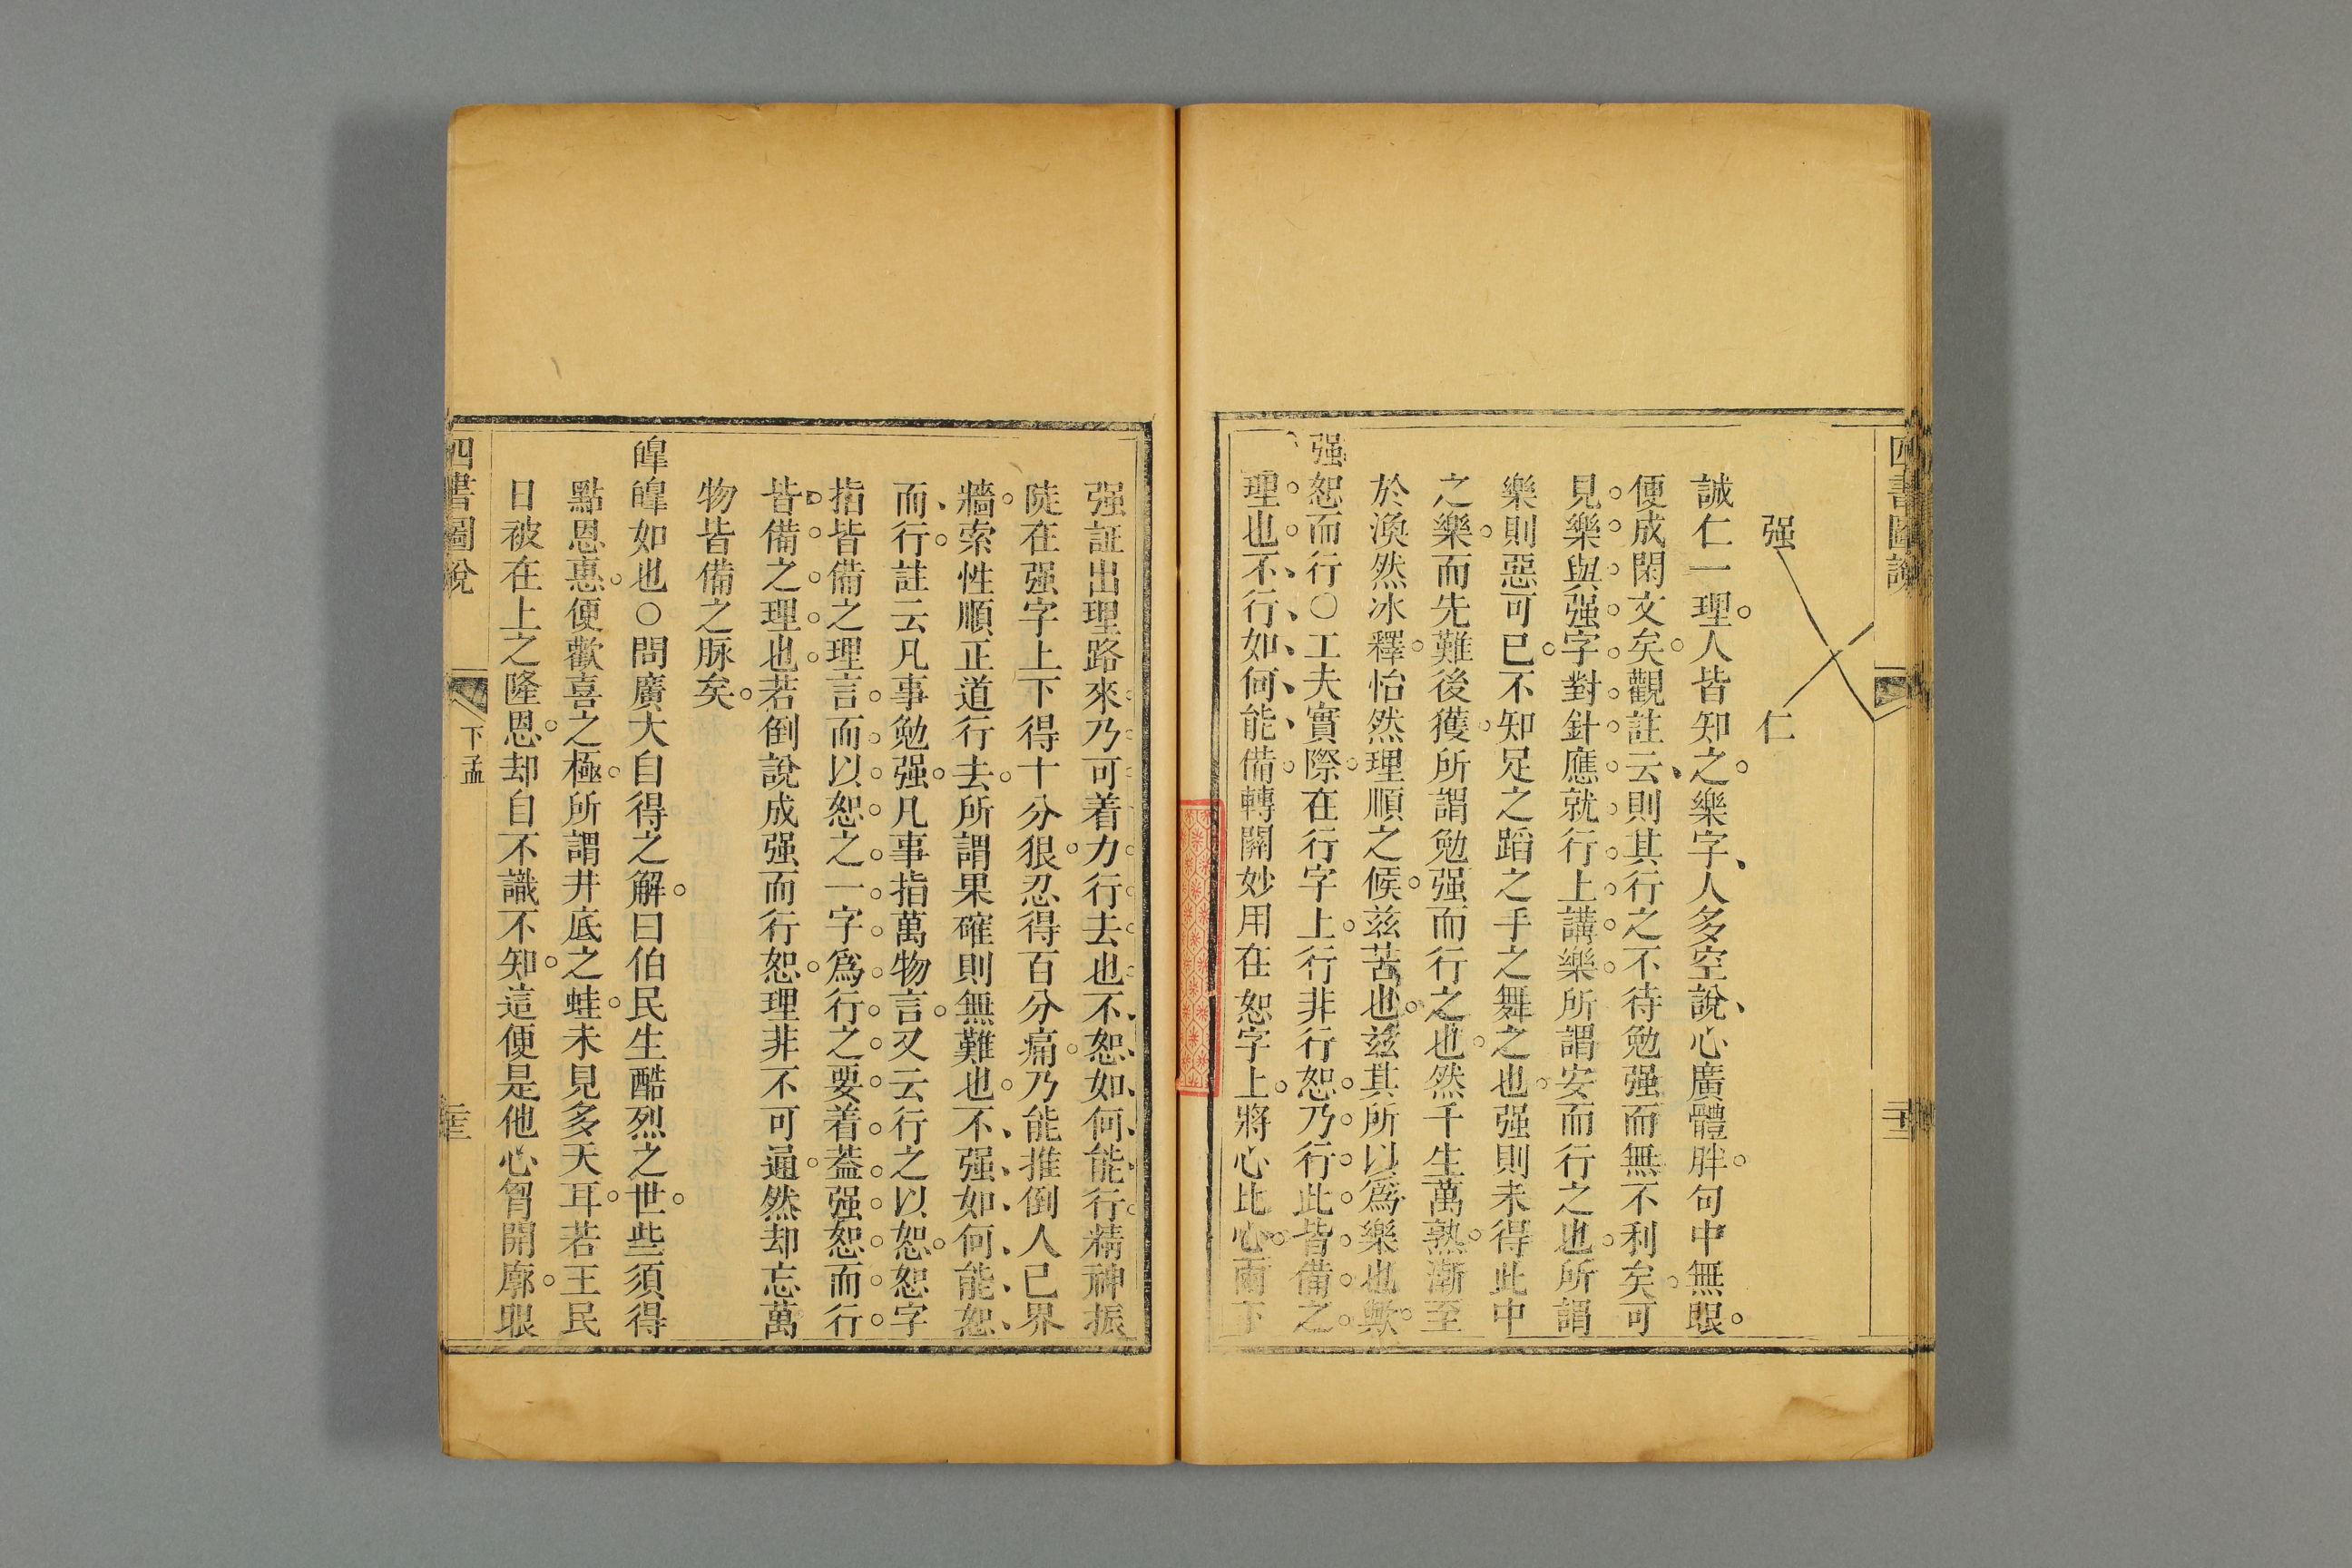 四書圖說
强
仁
誠仁一理人皆知之樂字人多空說心廣體胖句中無眼
便成閑文矣觀註云則其行之不待勉强而無不利矣可
見樂與强字對針應就行上講樂所謂安而行之也所謂
樂則惡可已不知足之蹈之手之舞之也强則未得此中
之樂而先難後獲所謂勉强而行之也然千生萬熟漸至
於渙然冰釋怡然理順之候兹苦也兹其所以為樂也歟
强恕而行○工夫實際在行字上行非行恕乃行此皆備之
理也不行如何能備轉關妙用在恕字上將心比心而下
强証出理路來乃可着力行去也不恕如何能行精神振
陡在强字上下得十分狠忍得百分痛乃能推倒人已界
牆索性順正道行去所謂果確則無難也不强如何能恕
而行註云凡事勉强凡事指萬物言又云行之以恕恕字
指皆備之理言而以恕之一字為行之要着葢强恕而行
皆備之理也若倒說成强而行恕理非不可通然却忘萬
物皆備之脉矣
皥皥如也○問廣大自得之解曰伯民生酷烈之世些須得
點恩惠便歡喜之極所謂井底之蛙未見多天耳若王民
日被在上之隆恩却自不識不知這便是他心胷開廓眼
四書圖說
下孟